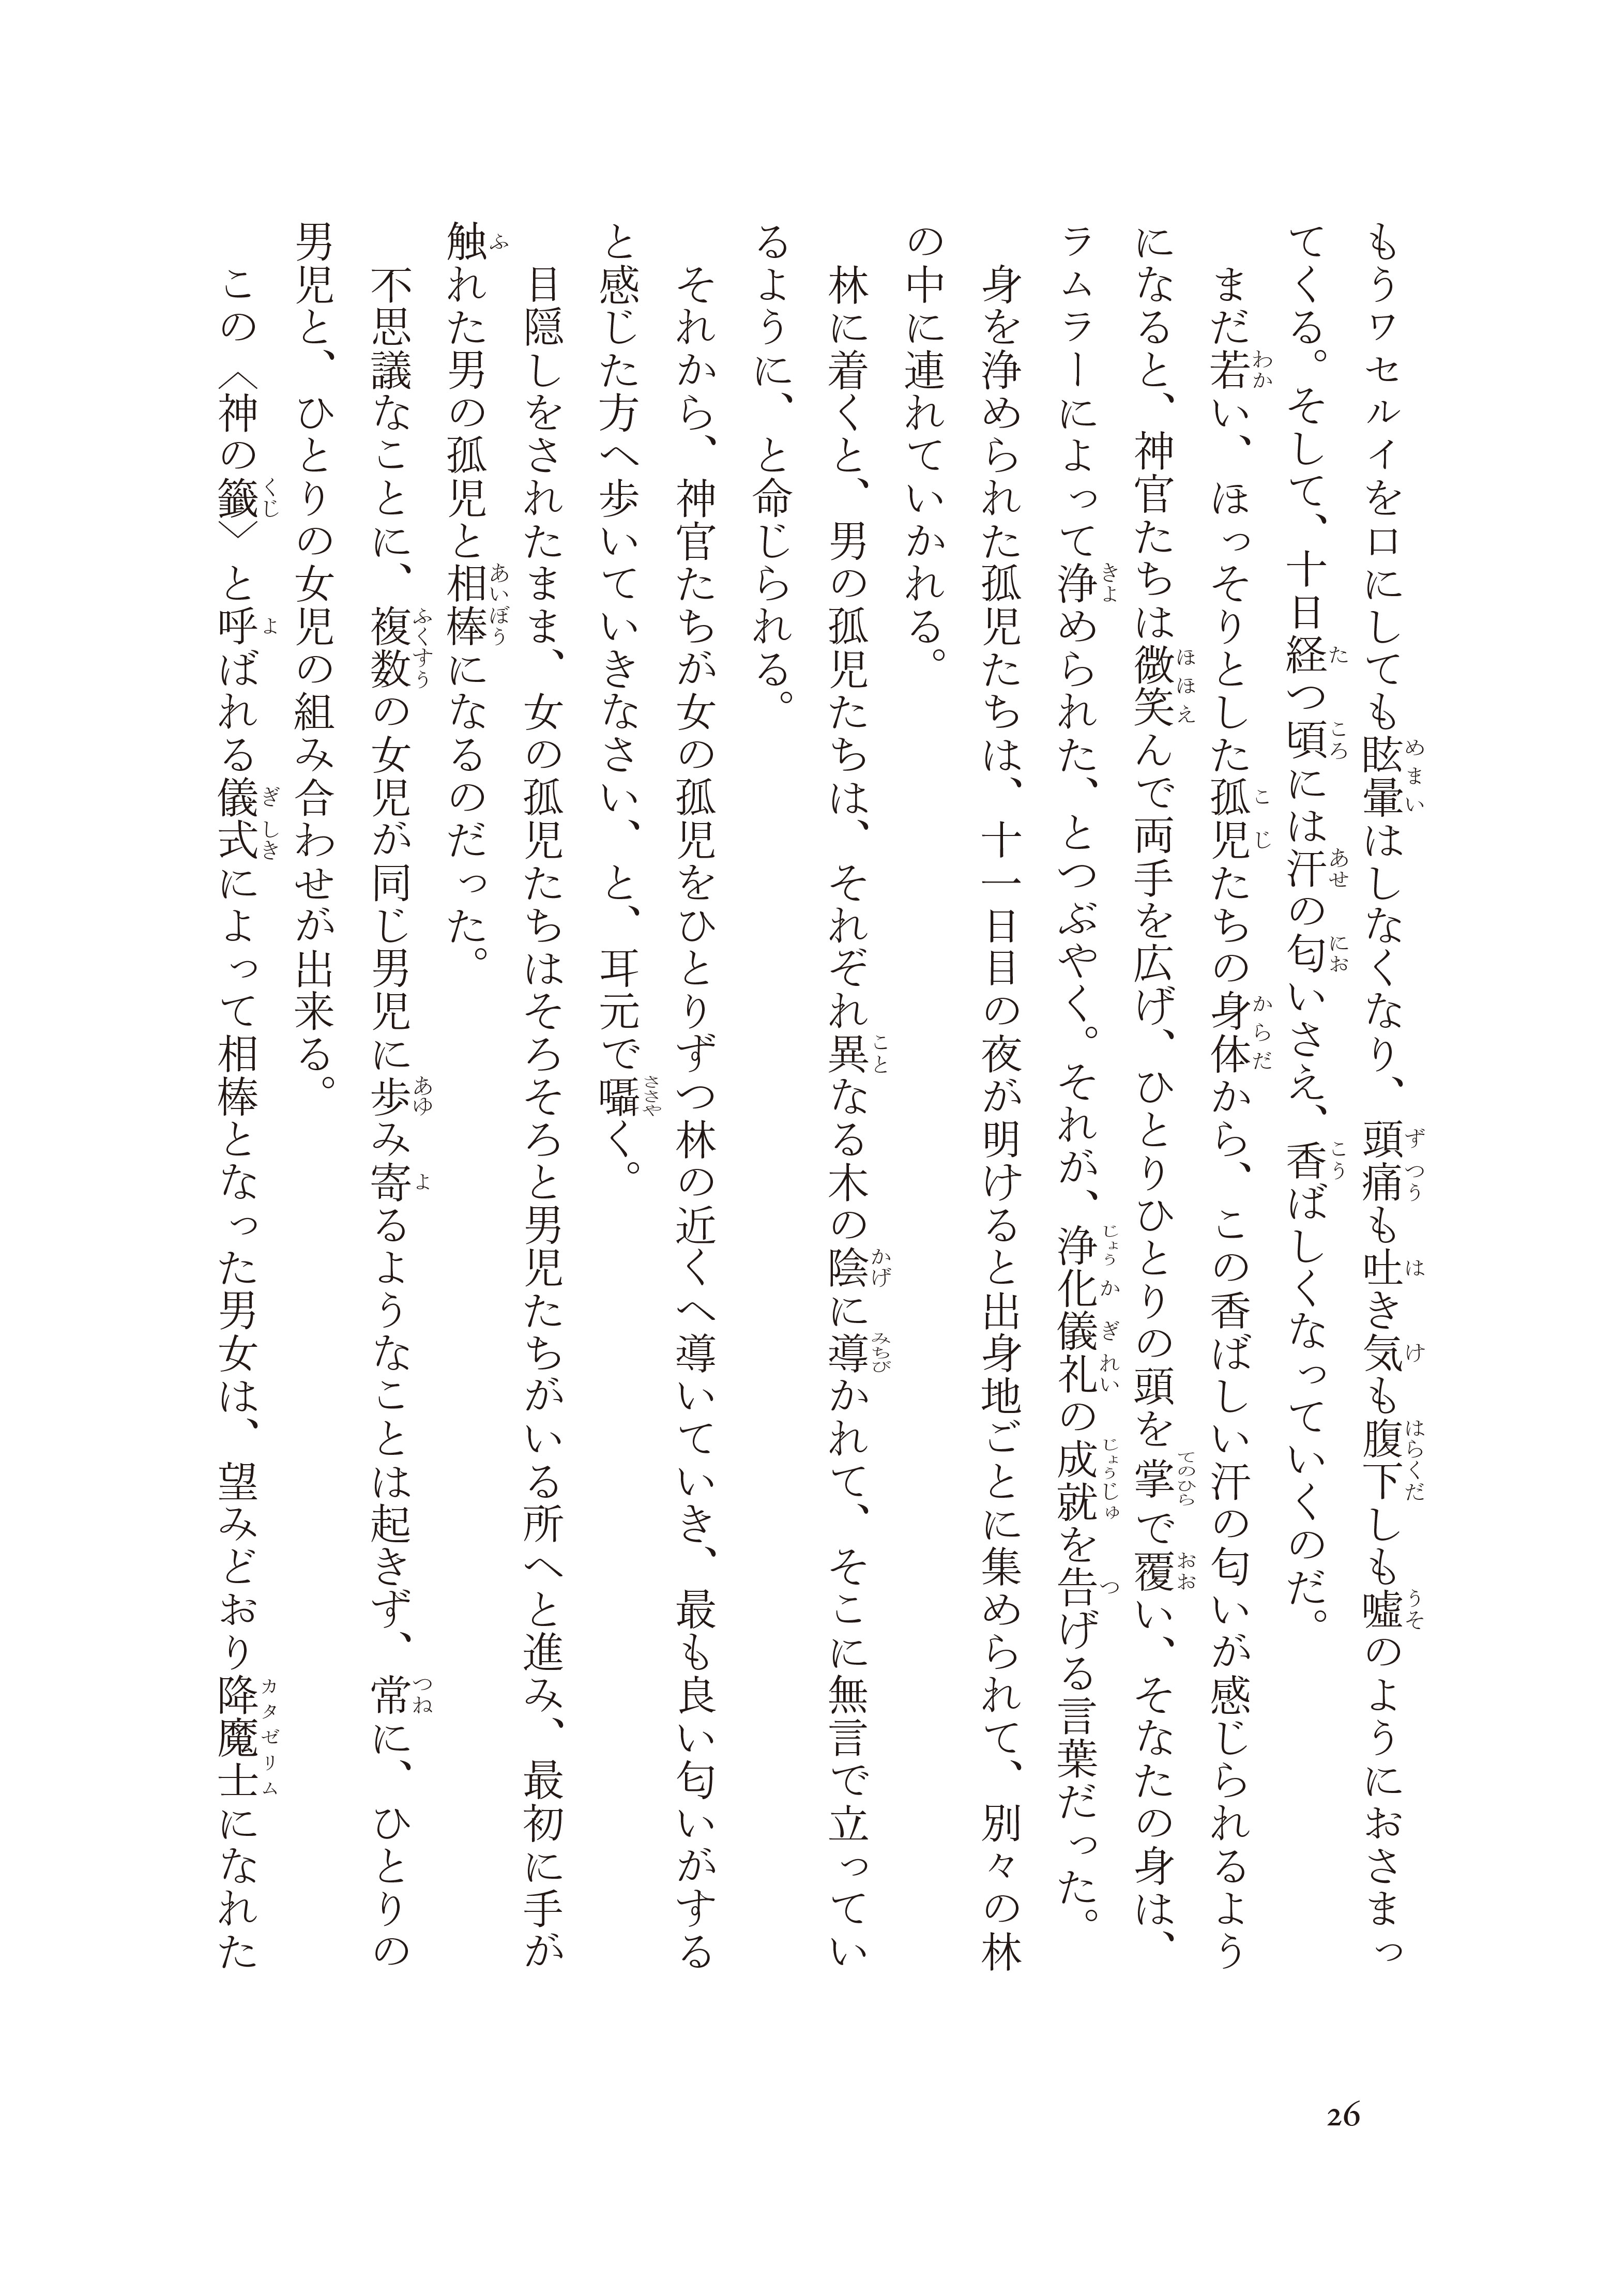 もうワセルイを口にしても眩暈はしなくなり、頭痛も吐き気も腹下しも嘘のようにおさまっ
てくる。そして、十日経つ頃には汗の匂いさえ、香ばしくなっていくのだ。
　まだ若い、ほっそりとした孤児たちの身体から、この香ばしい汗の匂いが感じられるよう
になると、神官たちは微笑んで両手を広げ、ひとりひとりの頭を掌で覆い、そなたの身は、
ラムラーによって浄められた、とつぶやく。それが、浄化儀礼の成就を告げる言葉だった。
　身を浄められた孤児たちは、十一日目の夜が明けると出身地ごとに集められて、別々の林
の中に連れていかれる。
　林に着くと、男の孤児たちは、それぞれ異なる木の陰に導かれて、そこに無言で立ってい
るように、と命じられる。
　それから、神官たちが女の孤児をひとりずつ林の近くへ導いていき、最も良い匂いがする
と感じた方へ歩いていきなさい、と、耳元で囁く。
　目隠しをされたまま、女の孤児たちはそろそろと男児たちがいる所へと進み、最初に手が
触れた男の孤児と相棒になるのだった。
　不思議なことに、複数の女児が同じ男児に歩み寄るようなことは起きず、常に、ひとりの
男児と、ひとりの女児の組み合わせが出来る。
　この〈神の籤〉と呼ばれる儀式によって相棒となった男女は、望みどおり降魔士になれた
26